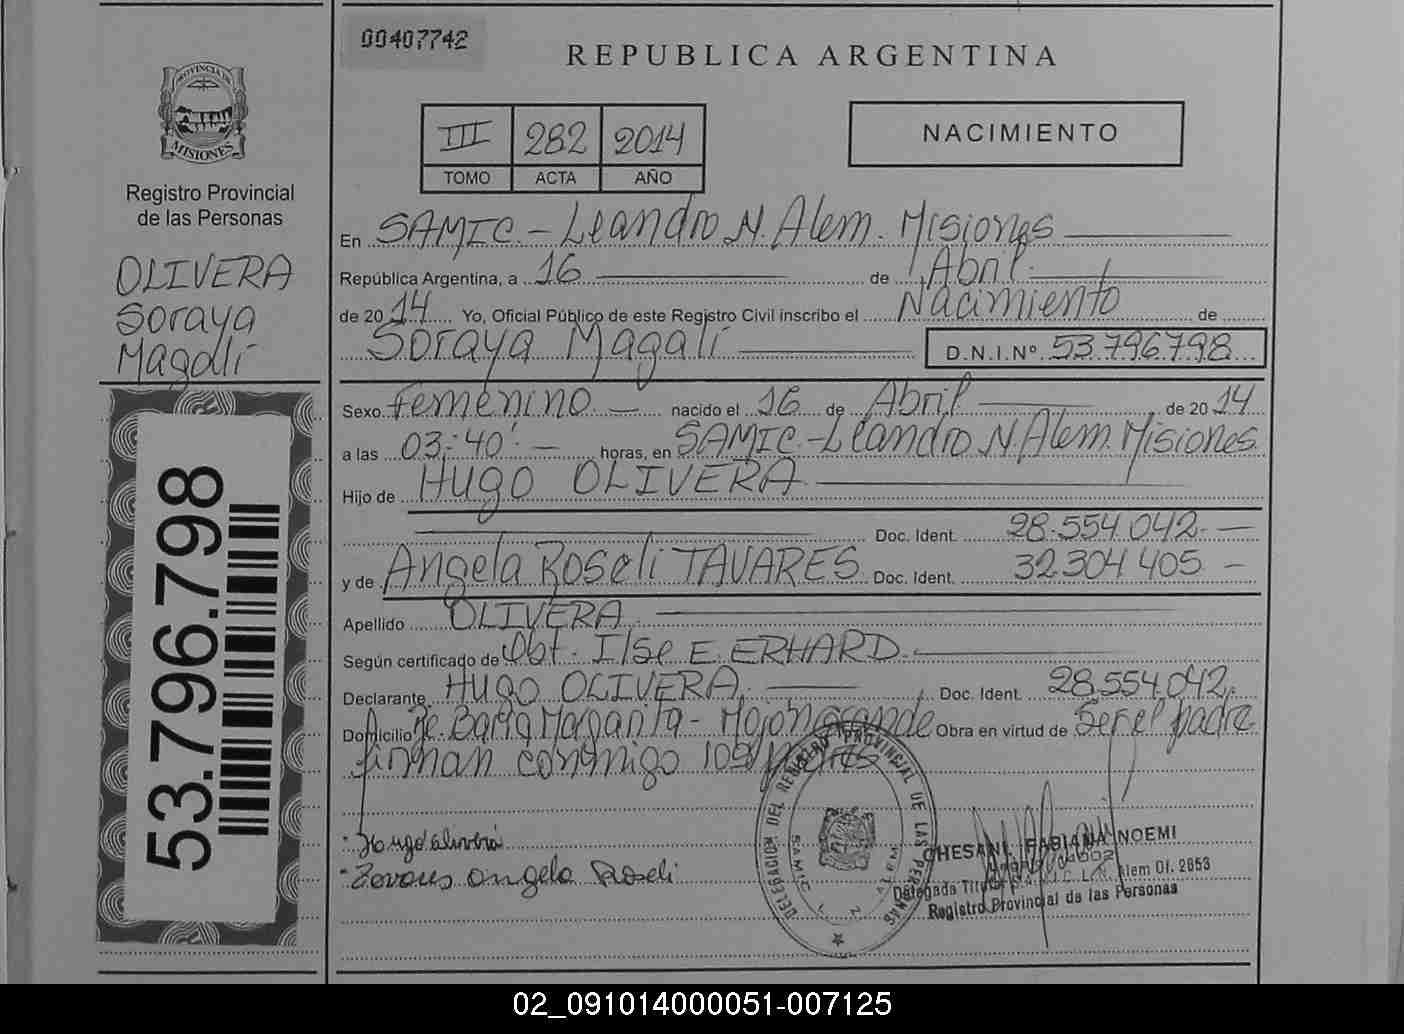 00407742
REPUBLICA ARGENTINA
PROVINCIA DE
MISIONES
Registro Provincial
de las Personas
OLIVERA
Soraya
Magalí
53.796.798
III 282 2014
TOMO ACTA AÑO
NACIMIENTO
En SAMIC.- Leandro N. Alem. Misiones
República Argentina, a 16 de Abril.
de 2014 Yo, Oficial Público de este Registro Civil inscribo el Nacimiento de
Soraya Magalí D.N.I.Nº 53.796.798
Sexo Femenino nacido el 16 de Abril de 2014
a las 03:40'.- horas, en SAMIC.-Leandro N. Alem. Misiones.
Hijo de Hugo OLIVERA
Doc. Ident. 28.554.042.-
y de Angela Roseli TAVARES Doc. Ident. 32.304.405 -
Apellido OLIVERA
Según certificado de Obt. Ilse E. ERHARD.
Declarante HUGO OLIVERA. Doc. Ident. 28.554.042.
Domicilio Barra Margarita - Mojon grande Obra en virtud de Ser el padre
firman conmigo los
Hugo olivera
Tavares angela Roseli
DELEGACION DEL REGISTRO PROVINCIAL DE LAS PERSONAS
SAMIC
CHESANI, FABIANA NOEMI
Delegada Titular S.A.M.I.C. L.N. Alem Of. 2853
Registro Provincial de las Personas
02_091014000051-007125